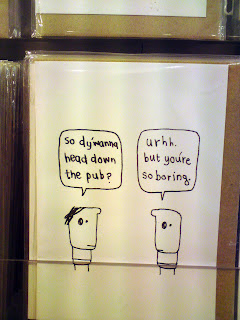 so dy'wanna
head down
the pub?
urhh.
but you're
so boring.